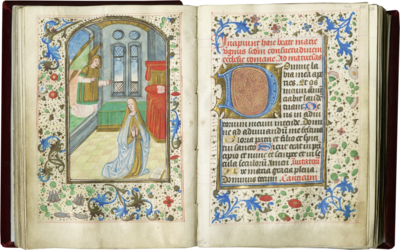 Incipiunt hore beate marie
virginis secundum consuetudinem
ecclesie romane. Ad matutinas
Domine la
bia mea ape
ries. Et os
meum annun
ciabit laudem
tuam. De
us in adiu
torium meum intende. Domi
ne ad adiuvandum me festina
Gloria patri et filio et spiri
tui sancto Sicut erat in prin
cipio et nunc et semper et in se
cula seculorum Amen
Ave maria gracia plena
Dominus tecum